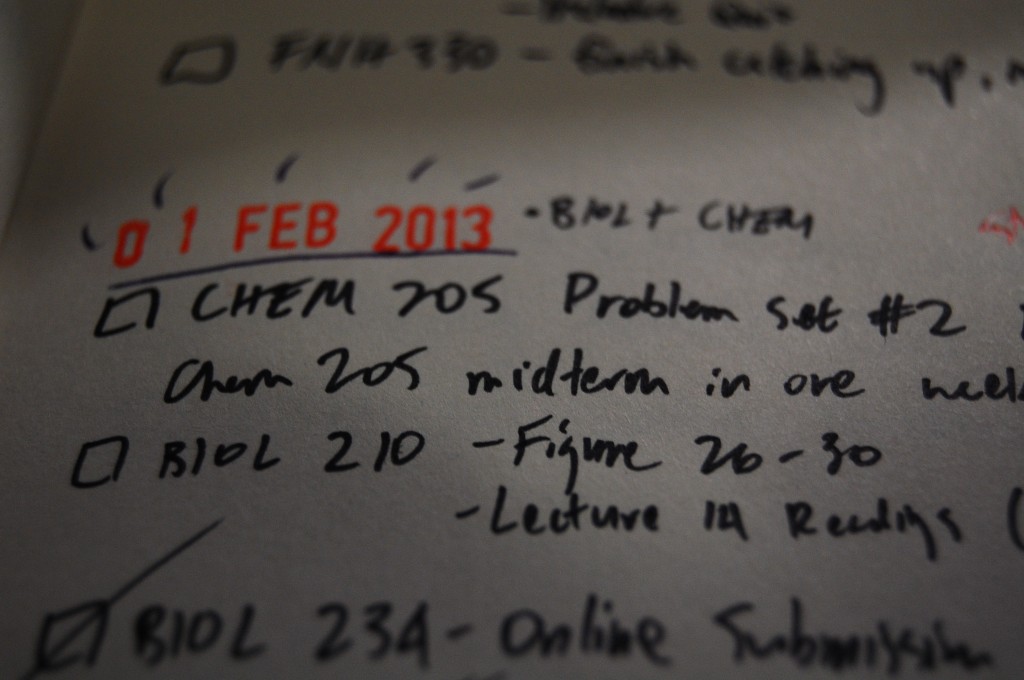 FNH 330 - finish catching up,
01 FEB 2013 - BIOL + CHEM
CHEM 205 Problem set #2
Chem 205 midterm in one week
BIOL 210 - Figure 26-30
- Lecture 14 Readings (
BIOL 234 - Online Submission